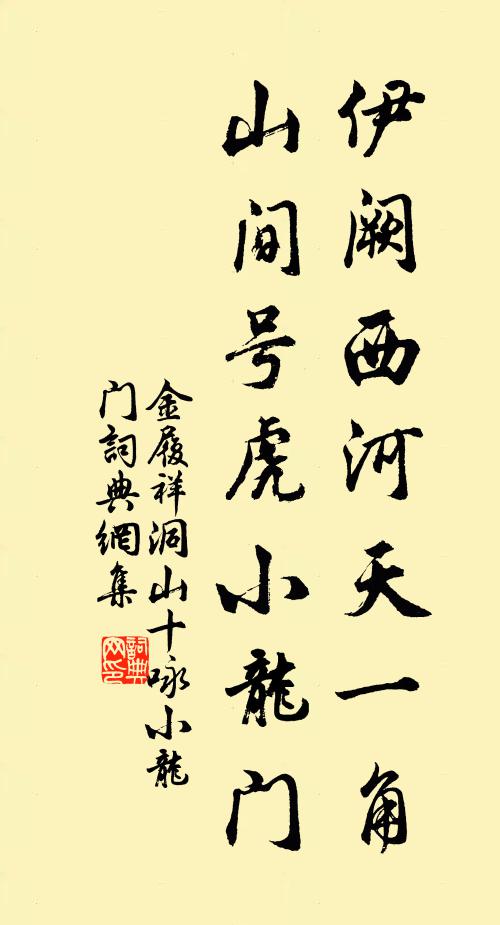 伊阙西河天一角
山间号虎小龍门
金履祥洞山十咏小龍
门詞典網集
詞典网印